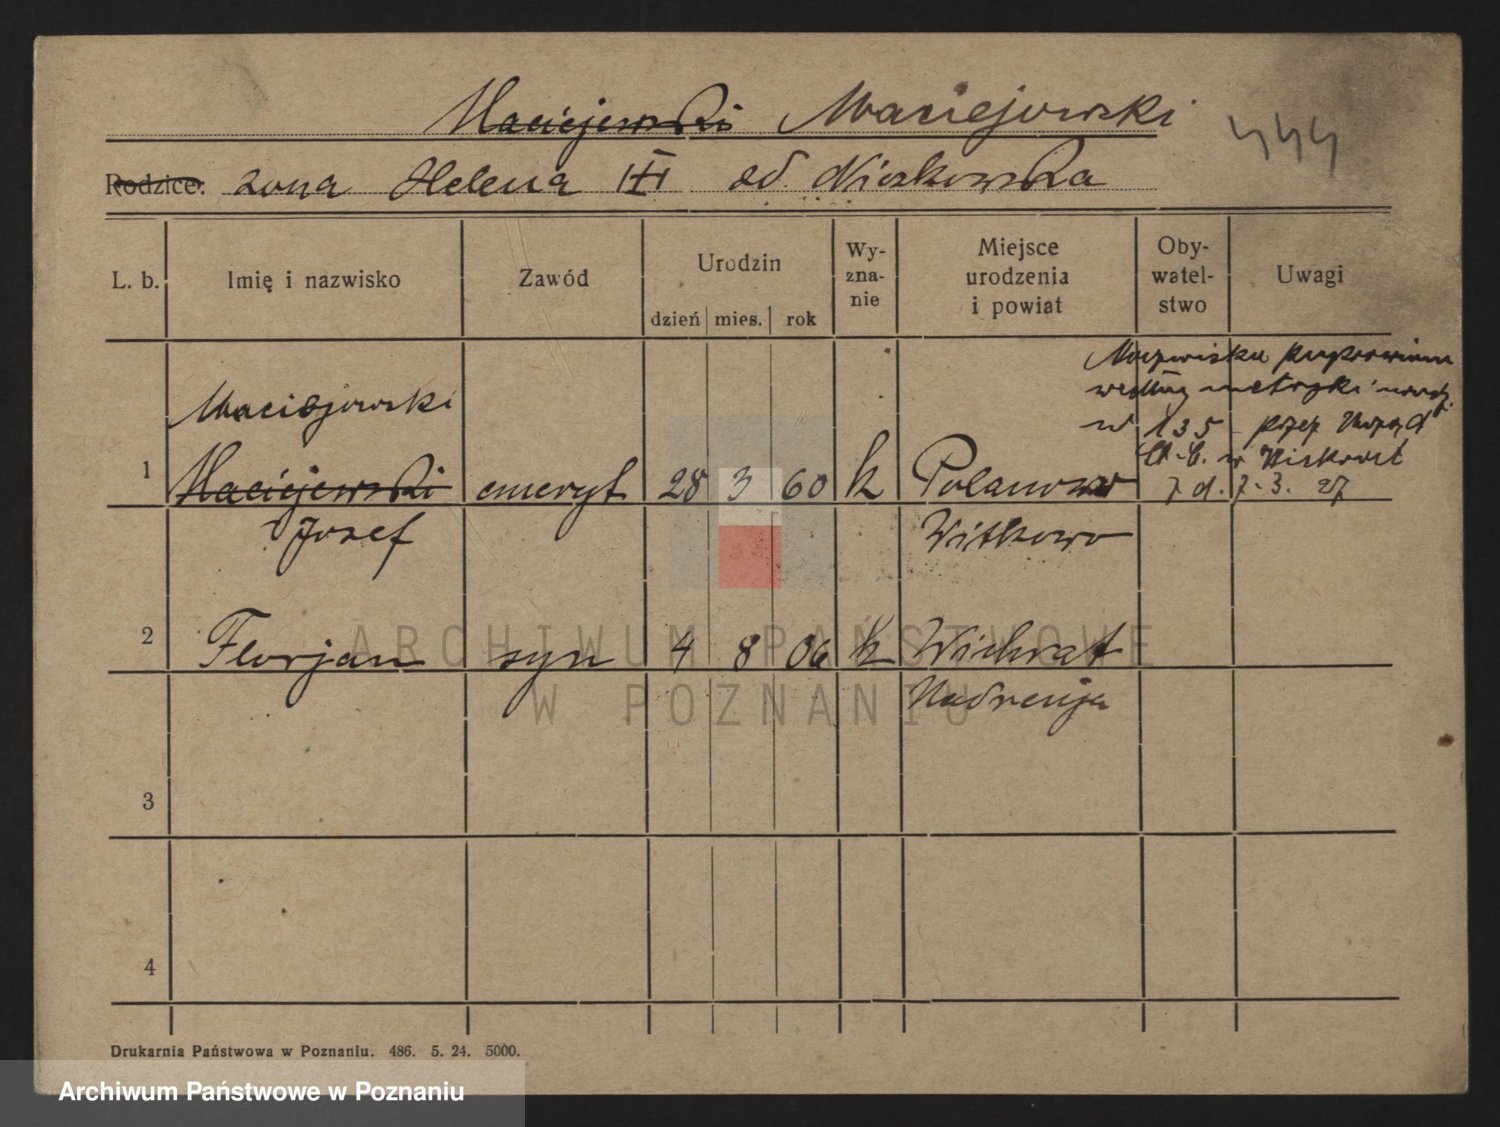 Maciejewski Maciejowski
444
Rodzice: żona Helena III od Niezkowska
L. b. Imię i nazwisko Zawód Urodzin Wy-zna-nie Miejsce urodzenia i powiat Oby-watel-stwo Uwagi
dzień mies. rok
Nazwisko poprawiono
według metryki urodz.
Maciejowski
w 135 przez Urząd
1 Maciejewski emeryt 28 3 60 k Polanowo
St. C. w
d. 7. 3. 27
Józef Witkowo
2 Florjan syn 4 8 06 k Wichrat
Nadrenja
3
4
ARCHIWUM PAŃSTWOWE
W POZNANIU
Drukarnia Państwowa w Poznaniu. 486. 5. 24. 5000.
Archiwum Państwowe w Poznaniu